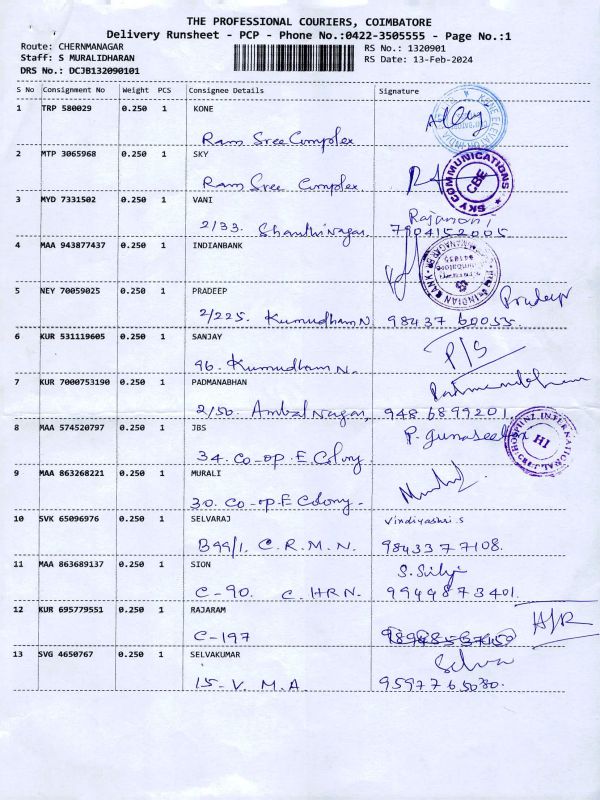 THE PROFESSIONAL COURIERS, COIMBATORE
Delivery Runsheet - PCP - Phone No.:0422-3505555 - Page No.:1
Route: CHERNMANAGAR RS No.: 1320901
Staff: S MURALIDHARAN RS Date: 13-Feb-2024
DRS No.: DCJB132090101
S No Consignment No Weight PCS Consignee Details Signature
1 TRP 580029 0.250 1 KONE
Ram Sree Complex
2 MTP 3065968 0.250 1 SKY
Ram Sree Complex
SKY COMMUNICATIONS CBE
3 MYD 7331502 0.250 1 VANI
Rajamani
2/33. Shanthi Nagar, 7904152005
4 MAA 943877437 0.250 1 INDIANBANK
INDIAN BANK
5 NEY 70059025 0.250 1 PRADEEP Pradeep
2/225. Kumudham N 98437 60055.
6 KUR 531119605 0.250 1 SANJAY
P/S
96. Kumudham N.
7 KUR 7000753190 0.250 1 PADMANABHAN Padmanabham
2/50. Ambal Nagar, 948 6899201
8 MAA 574520797 0.250 1 JBS
P. Gunaseelan
HI
34. Co-op. E Colony
9 MAA 863268221 0.250 1 MURALI
30. Co-op E Colony.
10 SVK 65096976 0.250 1 SELVARAJ Vindiyashri.S
B99/1. C.R.M.N. 9843377108.
11 MAA 863689137 0.250 1 SION
C-90. C. HRN. 9944873401.
12 KUR 695779551 0.250 1 RAJARAM
C-197
13 SVG 4650767 0.250 1 SELVAKUMAR Selva
15- V. M. A. 9597765080.